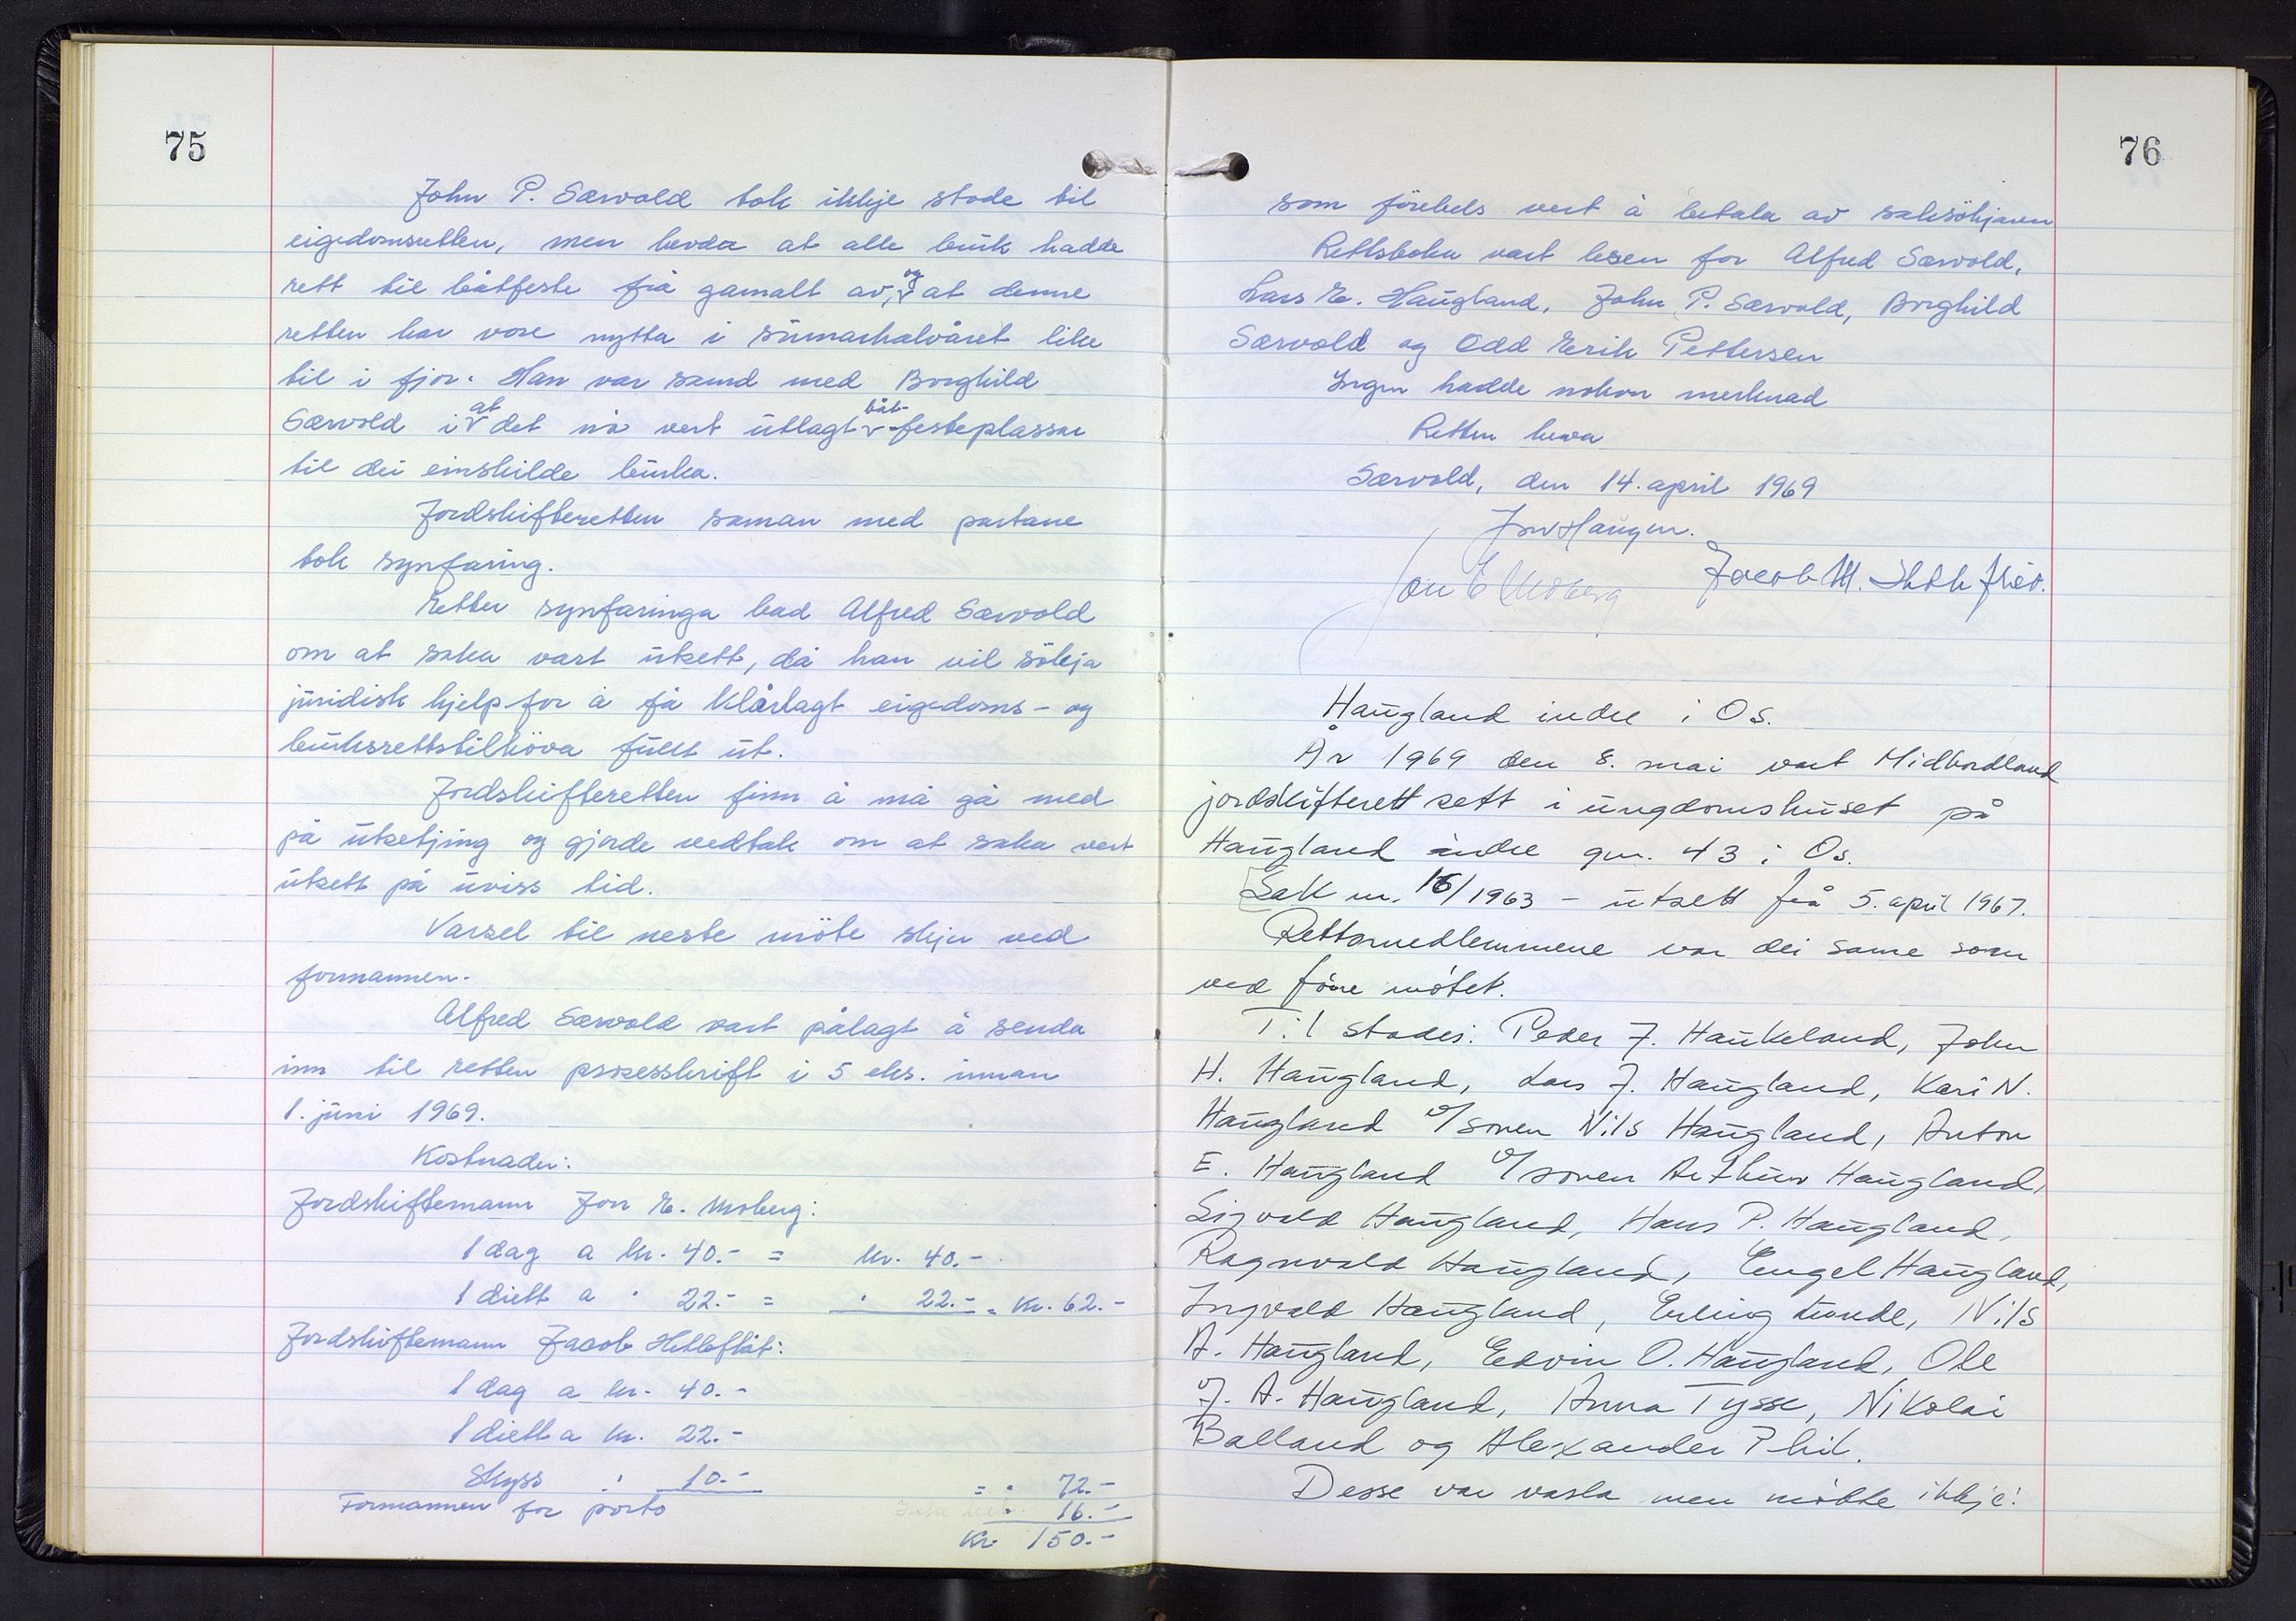 75
John P. Sævold tok ikkje stode til
eigedomsretten, men hevda at alle bruk hadde
rett til båtfeste frå gamalt av, og at denne
retten har vore nytta i sumarhalvåret like
til i fjor. Han var samd med Borghild
Sævold i at det nå vert utlagt båt-festeplassar
til dei einskilde bruka.
Jordskifteretten saman med partane
tok synfaring.
Etter synfaringa bad Alfred Sævold
om at saka vart utsett, då han vil søkja
juridisk hjelp for å få klårlagt eigedoms- og
bruksrettstilhöva fullt ut.
Jordskifteretten finn å må gå med
på utsetjing og gjorde vedtak om at saka vert
utsett på uviss tid.
Varsel til neste möte skjer ved
formannen.
Alfred Sævold vart pålagt å senda
inn til retten prosesskrift i 5 eks. innan
1. juni 1969.
Kostnader:
Jordskiftemann Jon E. Moberg:
1 dag a kr. 40.- = kr. 40.-
1 diett a " 22.- = " 22.- = Kr. 62.-
Jordskiftemann Jacob Hetleflåt:
1 dag a kr. 40.-
1 diett a kr. 22.-
Skyss : 10.- = " 72.-
Formannen for porto " 16.-
Kr. 150.-
76
som förebels vert å betala av saksökjaren
Rettsboka vart lesen for Alfred Sævold,
Lars E. Haugland, John P. Sævold, Borghild
Sævold og Odd Erik Pettersen
Ingen hadde nokon merknad
Retten heva
Sævold, den 14. april 1969
Jon E Moberg Jacob M. Hetleflåt.
Haugland indre i Os.
År 1969 den 8. mai vart Midhordland
jordskifterett sett i ungdomshuset på
Haugland indre gnr. 43 i Os.
Sak nr. 16/1963 - utsett frå 5. april 1967.
Rettsmedlemmene var dei same som
ved förre mötet.
Til stades: Peder J. Haukeland, John
H. Haugland, Lars J. Haugland, Kari N.
Haugland v/sonen Nils Haugland, Anton
E. Haugland v/sonen Arthur Haugland,
Sigvald Haugland, Hans P. Haugland,
Ragnvald Haugland, Engel Haugland,
Ingvald Haugland, Erling Lunde, Nils
A. Haugland, Edvin O. Haugland, Ole
J. A. Haugland, Anna Tysse, Nikolai
Balland og Alexander Phil.
Desse var varsla men mötte ikkje: